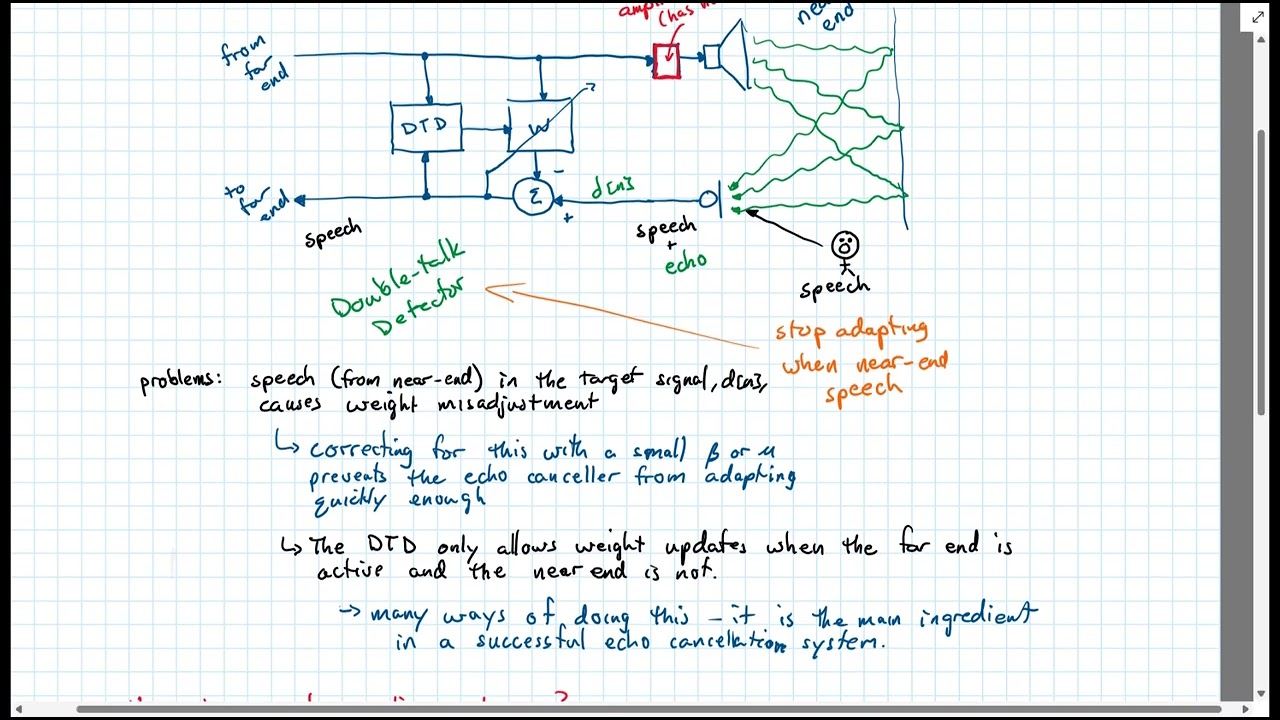 near
end
from
far
end
DTD
W
Σ
-
+
d[n]
to
far
end
speech
speech
+
echo
speech
Double-talk
Detector
stop adapting
when near-end
speech
problems: speech (from near-end) in the target signal, d[n],
causes weight misadjustment
↳ correcting for this with a small β or μ
prevents the echo canceller from adapting
quickly enough
↳ The DTD only allows weight updates when the far end is
active and the near end is not.
→ many ways of doing this - it is the main ingredient
in a successful echo cancellation system.